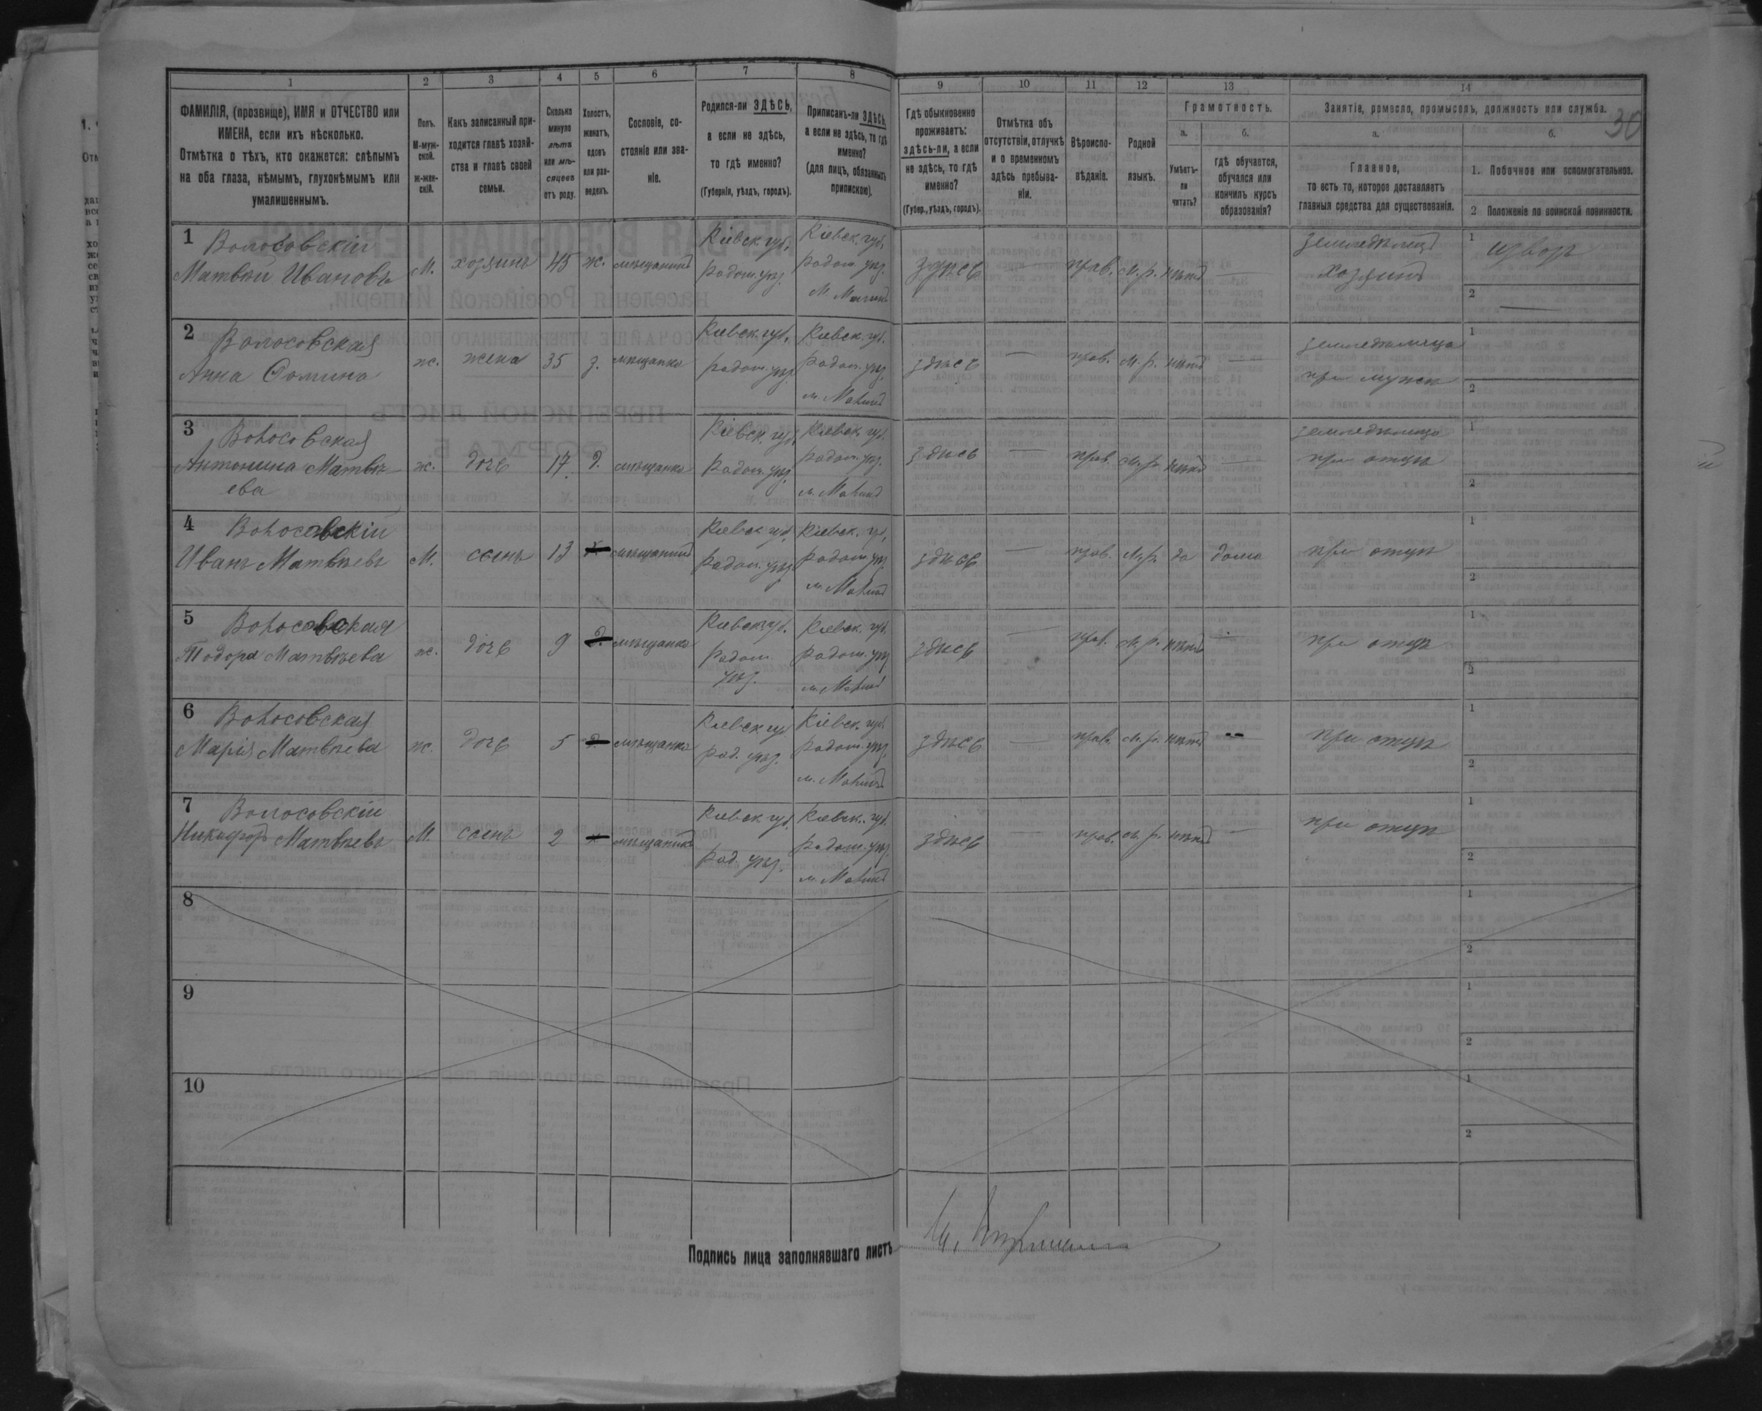 1
2
3
4
5
6
7
8
9
10
11
12
13
14
ФАМИЛІЯ, (прозвище), ИМЯ и ОТЧЕСТВО или
ИМЕНА, если ихъ нѣсколько.
Отмѣтка о тѣхъ, кто окажется: слѣпымъ
на оба глаза, нѣмымъ, глухонѣмымъ или
умалишеннымъ.
Полъ.
М-муж-
ской.
ж-жен-
скій.
Какъ записанный при-
ходится главѣ хозяй-
ства и главѣ своей
семьи.
Сколько
минуло
лѣтъ
или мѣ-
сяцевъ
отъ роду.
Холостъ,
женатъ,
вдовъ
или раз-
веденъ.
Сословіе, со-
стояніе или зва-
ніе.
Родился-ли ЗДѢСЬ,
а если не здѣсь,
то гдѣ именно?
(Губернія, уѣздъ, городъ).
Приписанъ-ли ЗДѢСЬ,
а если не здѣсь, то гдѣ
именно?
(для лицъ, обязанныхъ
припискою).
Гдѣ обыкновенно
проживаетъ:
здѣсь-ли, а если
не здѣсь, то гдѣ
именно?
(Губер., уѣздъ, городъ).
Отмѣтка объ
отсутствіи, отлучкѣ
и о временномъ
здѣсь пребыва-
ніи.
Вѣроиспо-
вѣданіе.
Родной
языкъ.
Грамотность.
а.
Умѣетъ-
ли
читать?
б.
гдѣ обучается,
обучался или
кончилъ курсъ
образованія?
Занятіе, ремесло, промыселъ, должность или служба.
30
а.
Главное,
то есть то, которое доставляетъ
главныя средства для существованія.
б.
1. Побочное или вспомогательное.
2 Положеніе по воинской повинности.
1 Волосовскій
Матвѣй Ивановъ
М. хозяинъ 45 ж. мѣщанинъ
Кіевск. губ.
радом. уѣз.
Кіевск. губ.
радом. уѣз.
здѣсь — прав. м.р. нѣтъ —
хозяинъ
1
2 —
2 Волосовская
Анна
ж. жена 35 з. мѣщанка
Кіевск. губ.
радом. уѣз.
Кіевск. губ.
радом. уѣз.
здѣсь — прав. м.р. нѣтъ —
при мужѣ
1
2
3 Волосовская
Антонина Матвѣ
ева
ж. дочь 17 д. мѣщанка
Кіевск. губ.
радом. уѣз.
Кіевск. губ.
радом. уѣз.
здѣсь — прав. м.р. нѣтъ —
при отцѣ
1
2
4 Волосовскій
Иванъ Матвѣевъ
М. сынъ 13 мѣщанинъ
Кіевск. губ.
радом. уѣз.
Кіевск. губ.
радом. уѣз.
здѣсь — прав. м.р. да дома
при отцѣ
1
2
5 Волосовская
Тодора Матвѣева
ж. дочь 9 мѣщанка
Кіевск губ.
радом.
уѣз.
Кіевск. губ.
радом. уѣз.
здѣсь — прав. м.р. нѣтъ —
при отцѣ
1
2
6 Волосовская
Марія Матвѣева
ж. дочь 5 мѣщанка
Кіевск губ
рад. уѣз.
Кіевск. губ.
радом. уѣз.
здѣсь — прав. м.р. нѣтъ —
при отцѣ
1
2
7 Волосовскій
Никифоръ Матвѣевъ
М. сынъ 2 мѣщанинъ
Кіевск губ.
рад. уѣз.
Кіевск. губ.
радом. уѣз.
здѣсь — прав. м.р. нѣтъ —
при отцѣ
1
2
8
1
2
9
1
2
10
1
2
Подпись лица заполнявшаго листъ